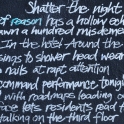 Shatter the night
of reason has a hollow
own a hundred misdemea
In the hotel Around the
sings to shower head wear
rails at rapt attention
command performance tonight
with roadmaps leading o
face lets residents read f
talking on the third floor